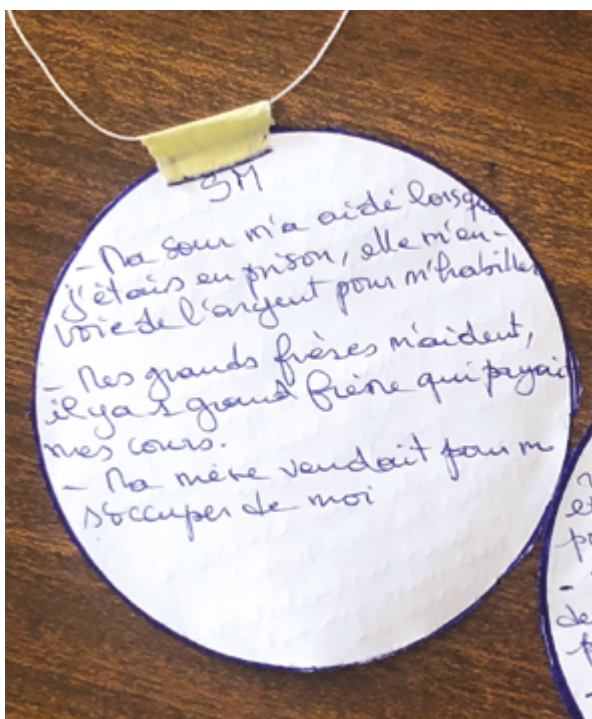 SM
- Ma sœur m'a aidé lorsque
j'étais en prison, elle m'en-
voie de l'argent pour m'habiller
- Mes grands frères m'aident,
il y a 1 grand frère qui payai
mes cours.
- Ma mère vendait pour m
s'occuper de moi
et
de